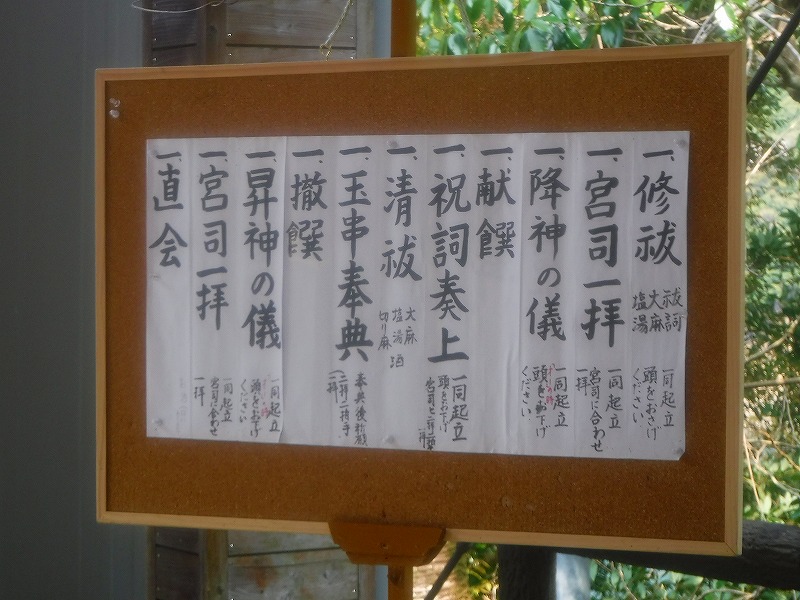 一、修祓
祓詞
大麻
塩湯
一同起立
頭をおさげ
ください
一、宮司一拝
一同起立
宮司に合わせ
一拝
一、降神の儀
一同起立
頭をお下げ
ください
一、献饌
一、祝詞奏上
一同起立
頭をお下げ
一、清祓
大麻
塩湯
酒
切り麻
一、玉串奉典
奉典後
二拝二拍手
一拝
一、撤饌
一、昇神の儀
一同起立
頭をお下げ
ください
一、宮司一拝
一同起立
宮司に合わせ
一拝
一、直会